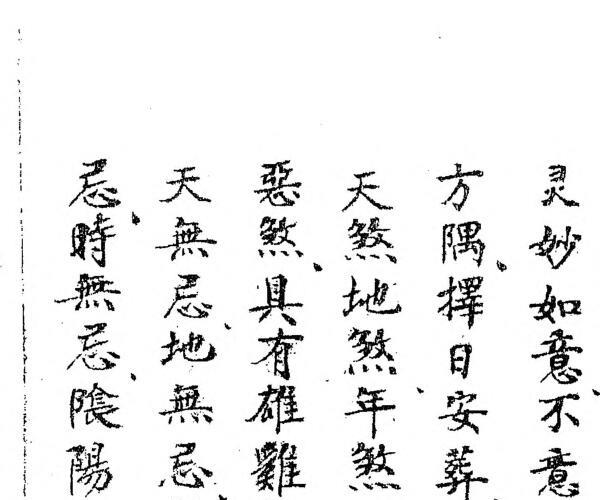 灵妙如意不意
方隅、擇日安葬
天煞地煞年、煞
惡煞、具有雄雞
天無忌、地無忌
忌、時無忌、陰陽